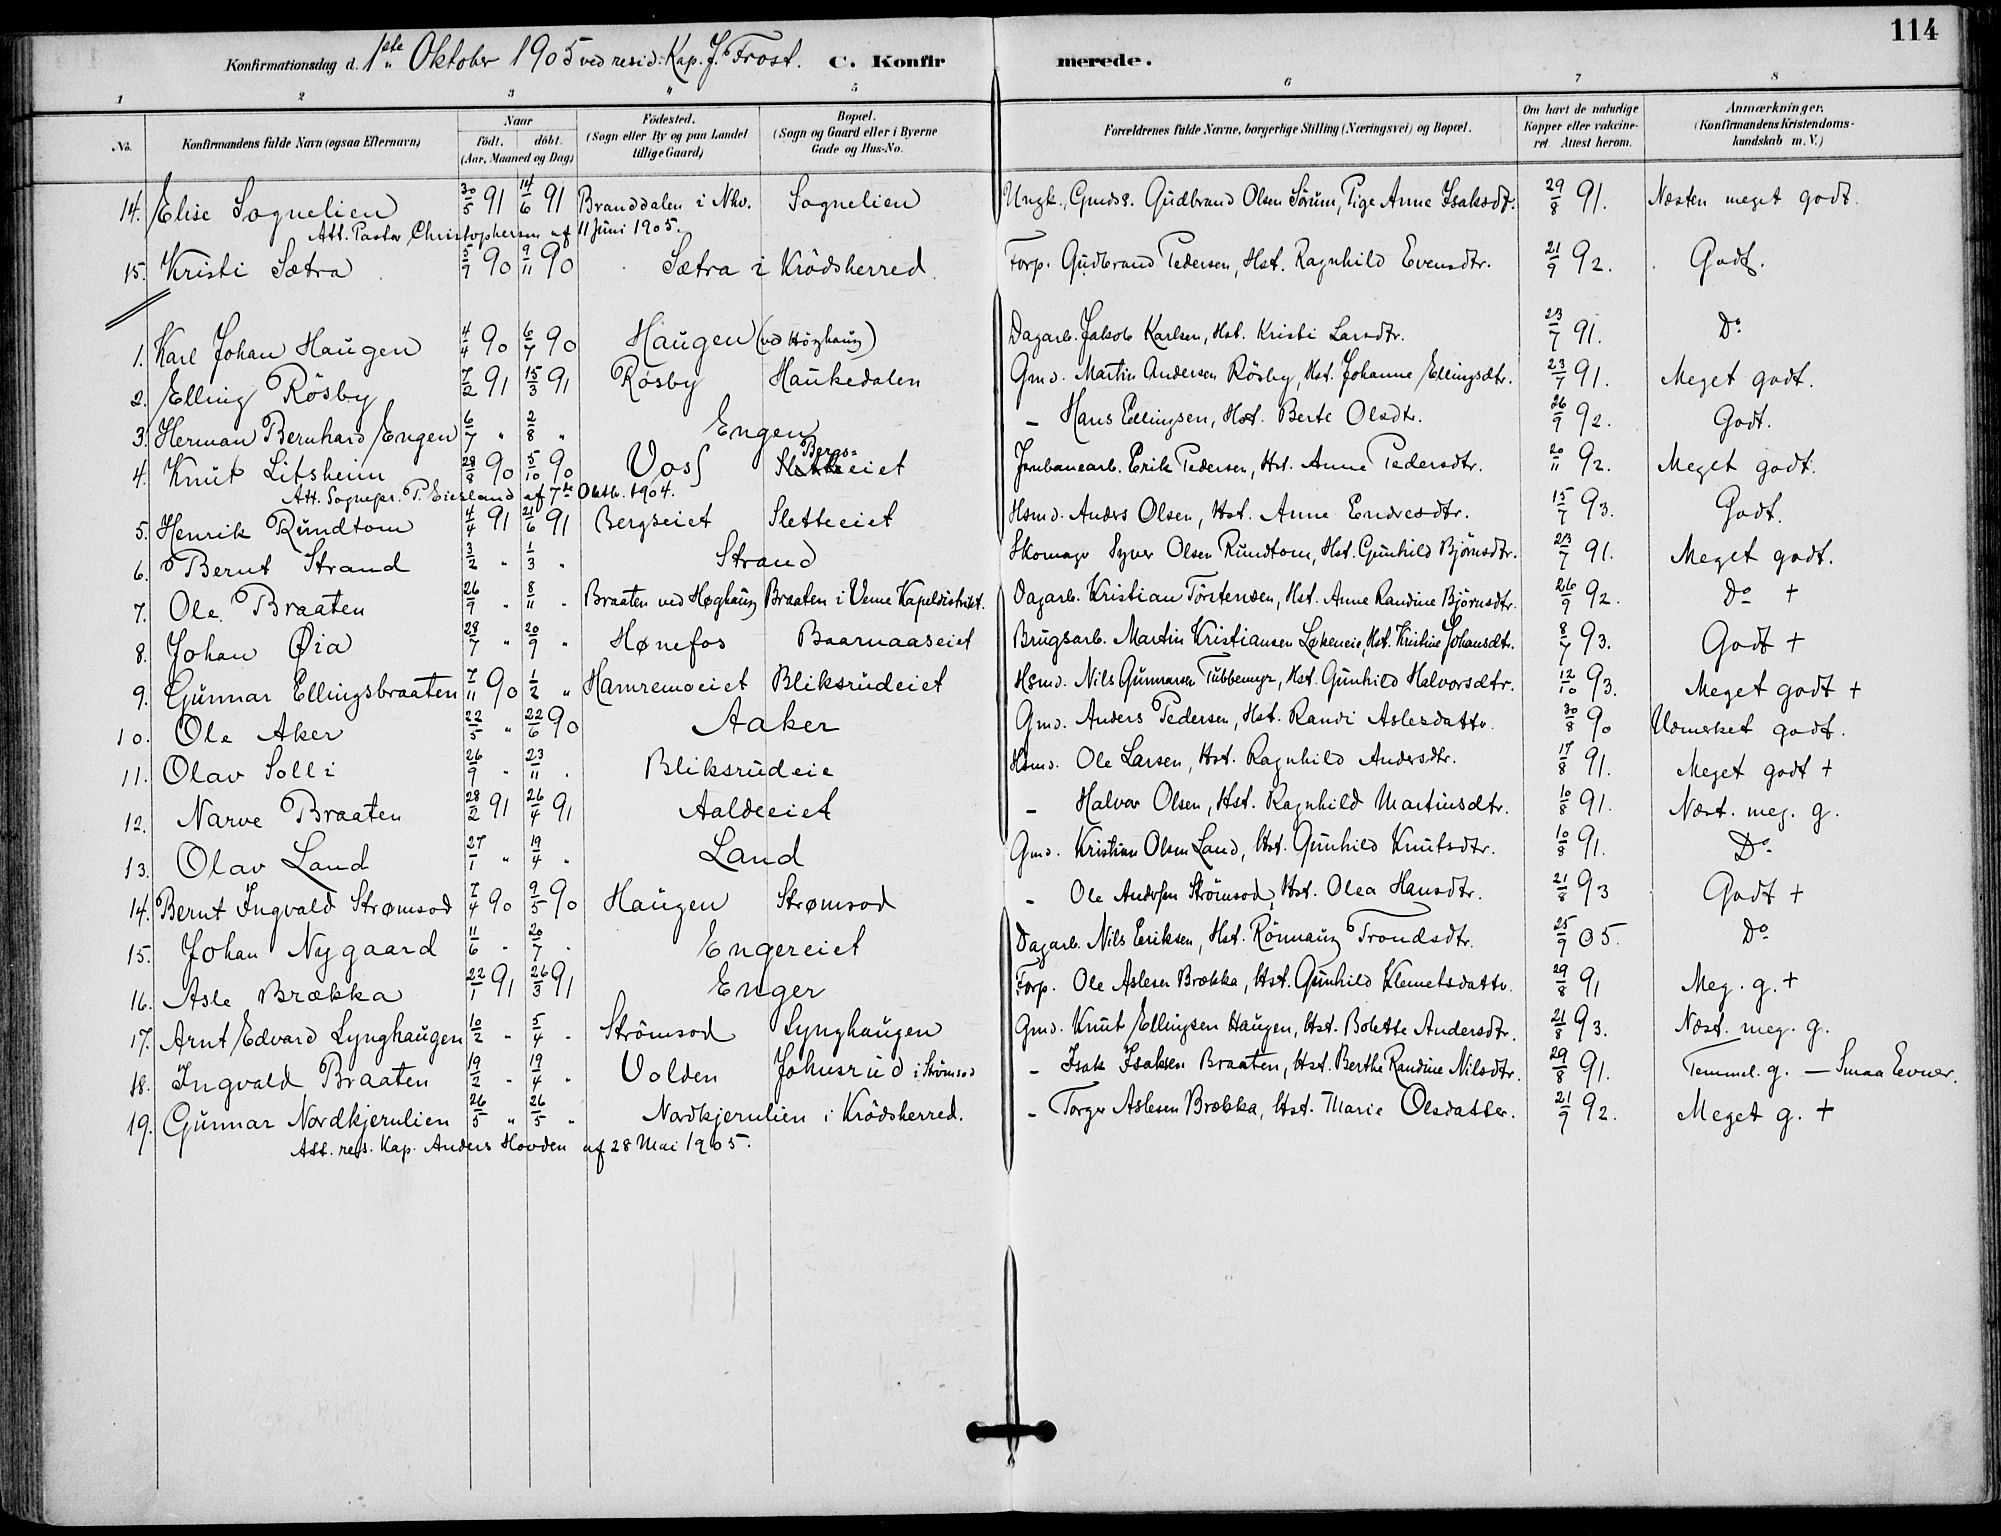 114
Konfirmationsdag d. 1ste Oktober 1905 ved resid. Kap. J. Frost. C. Konfirmerede.
1 2 3 " 5 6 7 8
No. Konfirmandens fulde Navn (ogsaa Efternavn) Naar født. døbt. (Aar, Maaned og Dag) Fødested. (Sogn eller By og paa Landet tillige Gaard) Bopæl. (Sogn og Gaard eller i Byerne Gade og Hus-No. Forældrenes fulde Navne, borgerlige Stilling (Næringsvei) og Bopæl. Om havt de naturlige Kopper eller vakcineret. Attest herom. Anmærkninger. (Konfirmandens Kristendomskundskab m. V.)
14. Elise Sognelien 30/5 91 14/6 91 Branddalen i Nho. Sognelien Ungk. Gmds. Gudbrand Olsen Sørum, Pige Anne Isaksdt. 29/8 91. Næsten meget godt.
Att. Pastor Christophersen af 11 Juni 1905.
15. Kristi Sætra 5/9 90 9/11 90 Sætra i Krödsherred Forp. Gudbrand Pedersen, Hst. Ragnhild Evensdtr. 21/9 92. Godt.
1. Karl Johan Haugen 4/4 90 6/7 90 Haugen (ved Höghaug) Dagarb. Jakob Karlsen, Hst. Kristi Larsdtr. 23/7 91. Do
2. Elling Rösby 7/2 91 15/3 91 Rösby Haukedalen Gmd. Martin Andersen Rösby, Hst. Johanne Ellingsdtr. 23/7 91. Meget godt.
3. Herman Bernhard Engen 6/7 " 2/8 " Engen – Hans Ellingsen, Hst. Berte Olsdtr. 26/9 92. Godt.
4. Knut Litsheim 28/8 90 5/10 90 Voss Bergs=eiet Jernbanearb. Erik Pedersen, Hst. Anne Pedersdtr. 20/11 92. Meget godt.
Att. Sognepr. T. Eiesland af 7de Oktb. 1904.
5. Henrik Rundtom 4/4 91 21/6 91 Bergseiet Sletteeiet Hsmd. Anders Olsen, Hst. Anne Endresdtr. 15/7 93. Godt.
6. Bernt Strand 3/2 " 1/3 " Strand Skomagr Syver Olsen Rundtom, Hst. Gunhild Bjørnsdtr. 23/7 91. Meget godt.
7. Ole Braaten 26/9 " 8/11 " Braaten ved Høghaug Braaten i Veme Kapeldistrikt. Dagarb. Kristian Torstensen, Hst. Anne Randine Björnsdtr. 26/9 92. Do +
8. Johan Øia 28/7 " 20/9 " Hønefos Baarnaaseiet Brugsarb. Martin Kristiansen Løkeneie, Hst. Kristine Johansdtr. 8/7 93. Godt +
9. Gunnar Ellingsbraaten 7/11 90 1/2 " Hamremoeiet Bliksrudeiet Hsmd. Nils Gunnarsen Tubbemyr, Hst. Gunhild Halvorsdtr. 12/10 93. Meget godt +
10. Ole Aker 22/5 " 22/6 90 Aaker Gmd. Anders Pedersen, Hst. Randi Aslesdattr. 30/8 90 Udmerket godt.
11. Olav Solli 26/9 " 23/11 " Bliksrudeie Hsmd. Ole Larsen, Hst. Ragnhild Andersdtr. 17/8 91. Meget godt +
12. Narve Braaten 28/2 91 26/4 91 Aaldeeiet – Halvor Olsen, Hst. Ragnhild Martinsdtr. 10/8 91. Næst. meg. g.
13. Olav Land 27/1 " 19/4 " Land Gmd. Kristian Olsen Land, Hst. Gunhild Knutsdtr. 10/8 91. Do.
14. Bernt Ingvald Strømsod 7/4 90 9/5 90 Haugen Strømsod – Ole Andersen Strömsod, Hst. Olea Hansdtr. 21/8 93 Godt +
15. Johan Nygaard 11/6 " 20/7 " Engereiet Dagarb. Nils Eriksen, Hst. Rönnaug Trondsdtr. 25/9 05. Do
16. Asle Brækka 22/1 91 26/3 91 Enger Forp. Ole Aslesen Brækka, Hst. Gunhild Klemetsdattr. 29/8 91 Meg. g. +
17. Arnt Edvard Lynghaugen 10/2 " 5/4 " Strömsod Lynghaugen Gmd. Knut Ellingsen Haugen, Hst. Bolette Andersdtr. 21/8 93. Næst. meg. g.
18. Ingvald Braaten 19/2 " 19/4 " Volden Johnsrud i Strömsod – Isak Isaksen Braaten, Hst. Berthe Randine Nilsdtr. 29/8 91. Temmel. g. – Smaa Evner.
19. Gunnar Nordkjernlien 26/5 " 26/5 " Nordkjernlien i Krödsherred. – Torger Aslesen Brækka, Hst. Marie Olsdatter. 21/9 92. Meget g. +
Att. res. Kap. Anders Hovden af 28 Mai 1905.